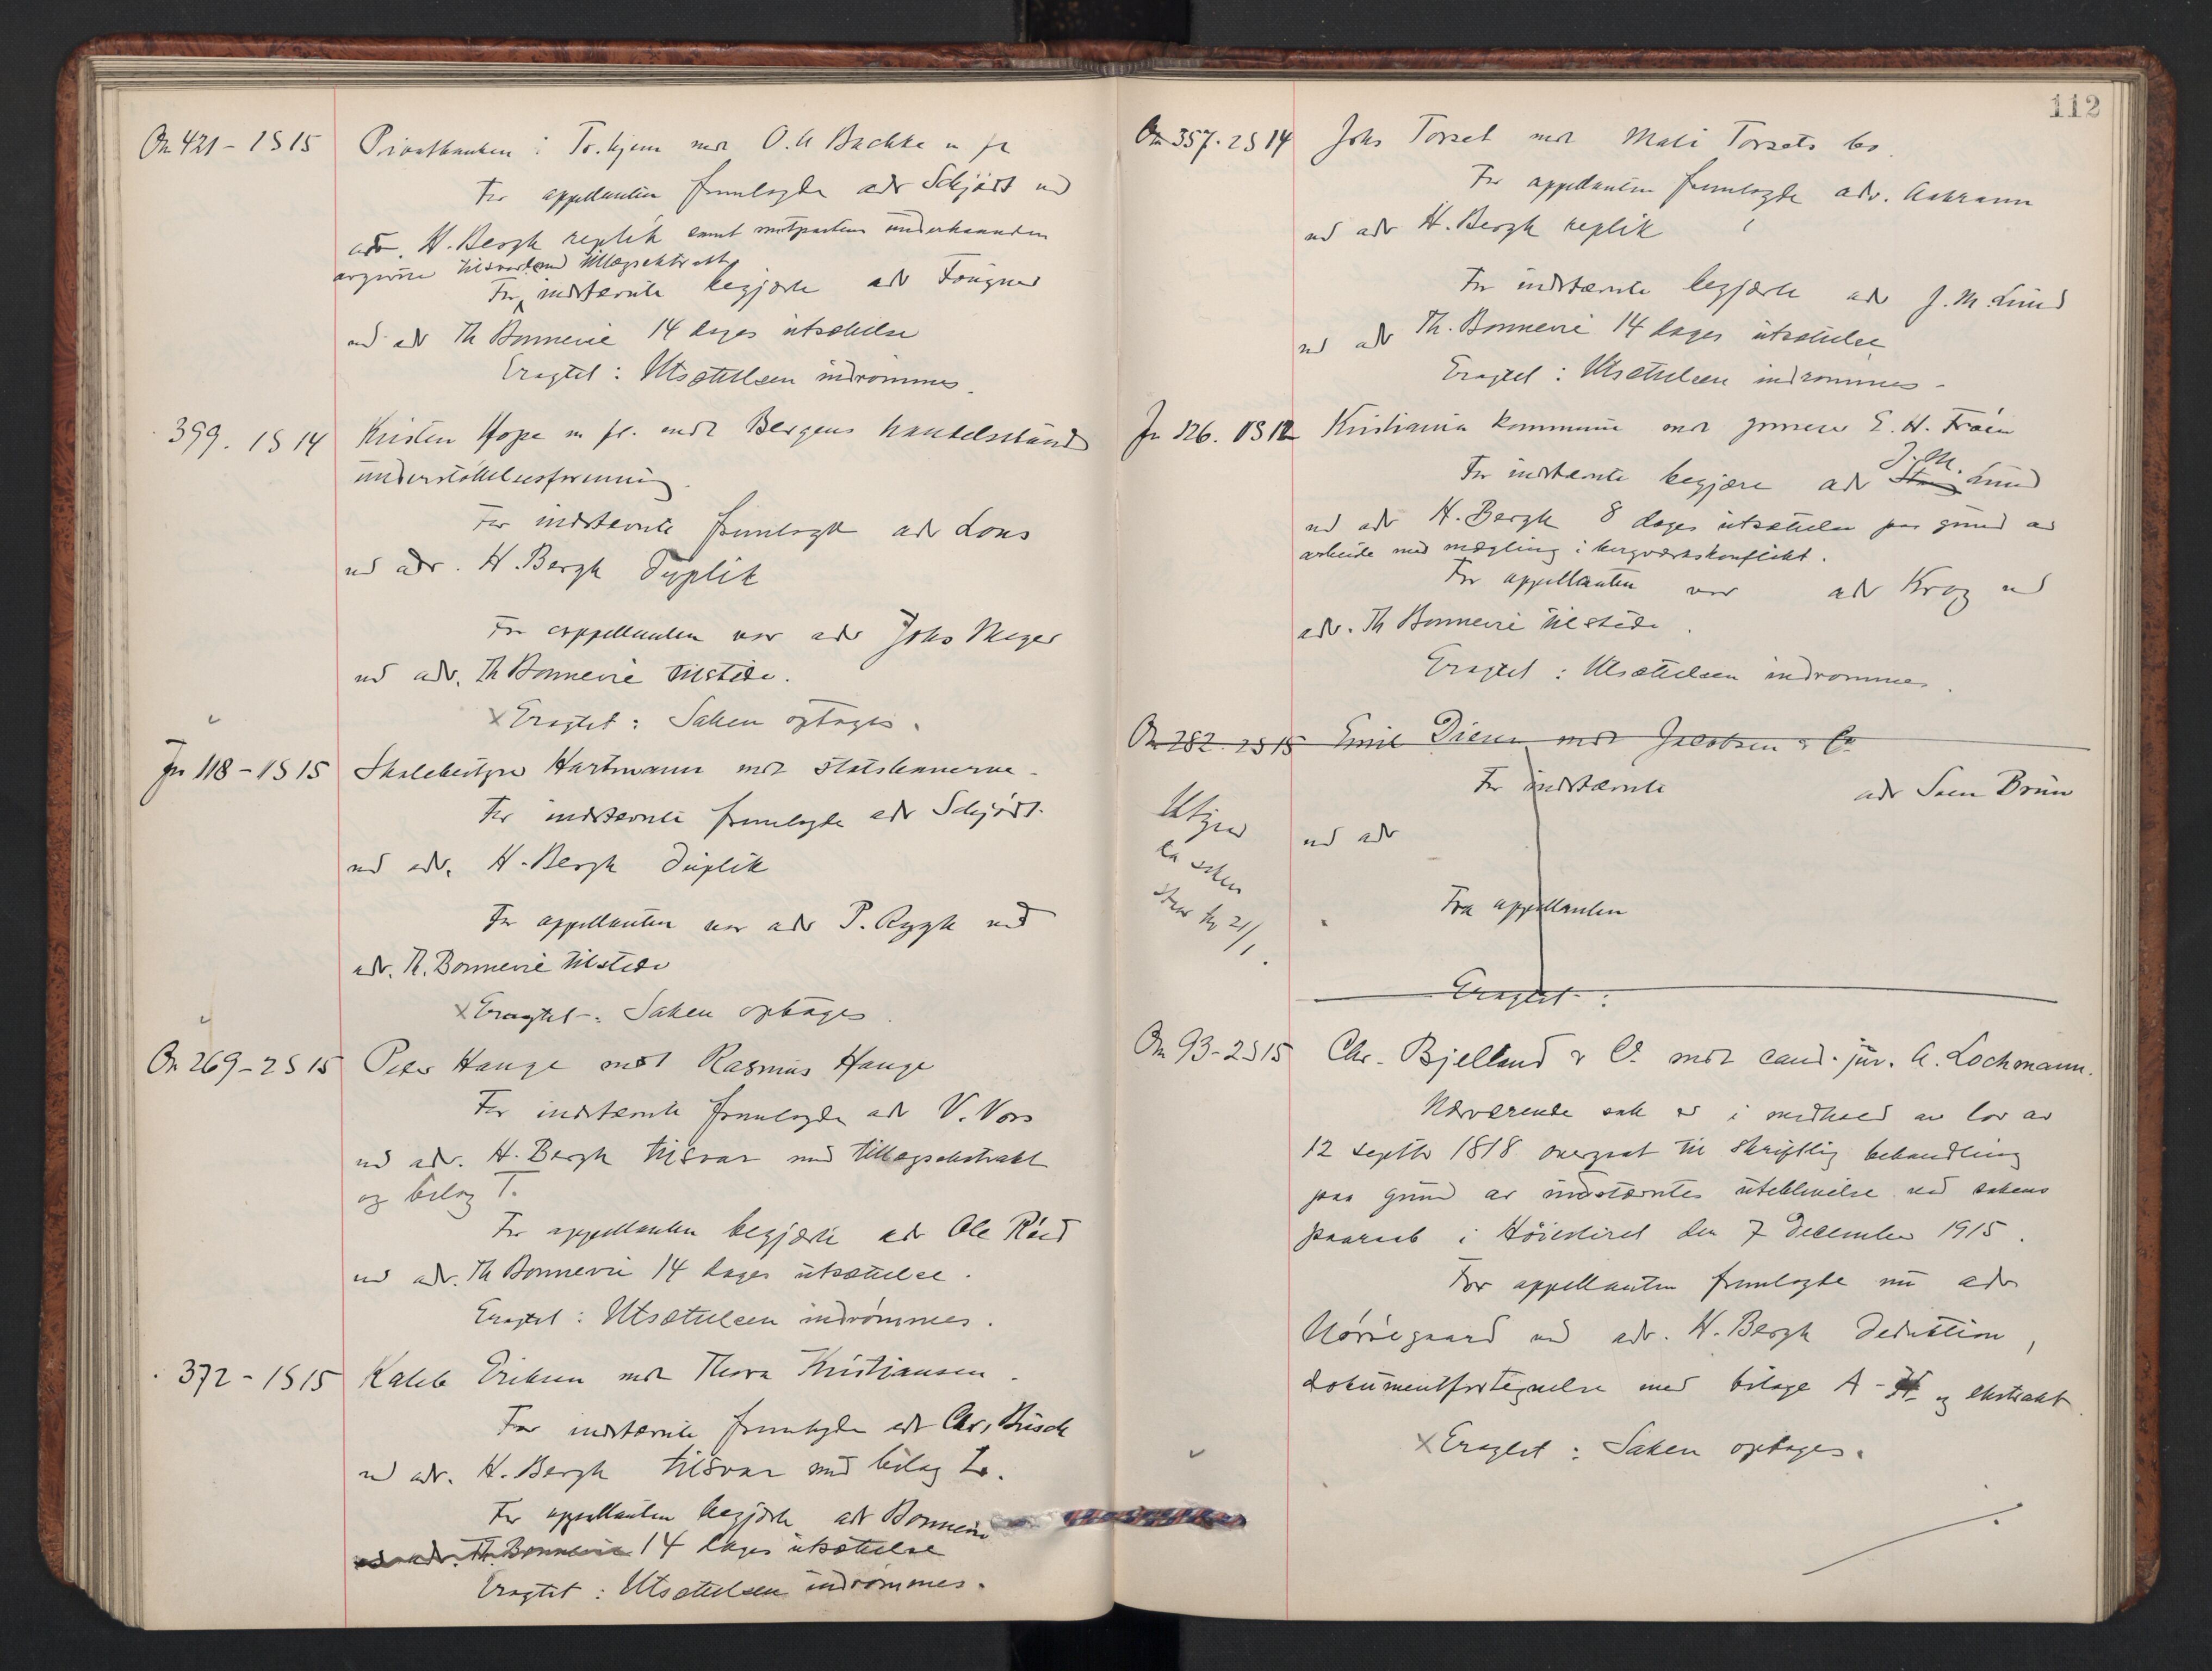 On 421 - 1S 15 Privatbanken i Tr.hjem mot O. A Bachke m fl
For appellanten fremlagde adv Schjødt ved
adv. H. Bergh replik samt motpartens underhaanden
avgivne tilsvar med tillægsekstrakt
For indstevnte begjærte adv Fougner
ved adv Th Bonnevie 14 dages utsættelse
Eragtet : Utsættelsen indrømmes.
399. 1S 14 Kristen Hope m fl. mot Bergens handelsstands
understøttelsesforening.
For indstevnte fremlagde adv Lous
ved adv. H. Bergh Duplik
For appellanten var adv Johs Meyer
ved adv. Th Bonnevie tilstede.
x Eragtet : Saken optages.
Jn 118 - 1S 15 Skolebestyrer Hartmann mot Statsbanerne.
For indstevnte fremlagde adv Schjødt.
ved adv. H. Bergh Duplik
For appellanten var adv P. Rygh ved
adv. Th. Bonnevie tilstede
x Eragtet : Saken optages.
On 269 - 2S 15 Peter Hauge mot Rasmus Hauge
For indstevnte fremlagde adv V. Vors
ved adv. H. Bergh tilsvar med tillægsekstrakt
og bilag T.
For appellanten begjærte adv Ole Røed
ved adv. Th Bonnevie 14 dages utsættelse.
Eragtet : Utsættelsen indrømmes.
372 - 1S 15 Kaleb Eriksen mot Thora Kristiansen.
For indstevnte fremlagde adv Chr. Busch
ved adv. H. Bergh tilsvar med bilag
For appellanten begjærte adv Bonnevie
ved adv. Th. Bonnevie 14 dages utsættelse
Eragtet : Utsættelsen indrømmes.
112
On 357. 2S 14 Johs Torset mot Mali Torsets bo.
For appellanten fremlagde adv. Aakrann
ved adv H. Bergh replik
For indstevnte begjærte adv J. M. Lund
ved adv Th. Bonnevie 14 dages utsættelse
Eragtet : Utsættelsen indrømmes.
Jn 126. Kristiania kommune mot E. H.
J. M.
For indstevnte begjære adv Lund
ved adv H. Bergh 8 dages utsættelse paa grund av
arbeide med mægling i bergverkskonflikt.
For appellanten var adv Krog ved
adv. Th Bonnevie tilstede.
Eragtet : Utsættelsen indrømmes.
On 282. 2S 15 Emil Diesen mot Jacobsen & Co
For indstevnte adv Sven Bruun
Utgaar
ved adv
da saken
21/1.
For appellanten
Eragtet :
On 93 - 2S 15 Chr. Bjelland & Co. mot cand. jur. A. Lochmann.
Nærværende sak er i medhold av lov av
12 septbr 1818 overgaat til skriftlig behandling
paa grund av indstevntes uteblivelse ved sakens
paaraab i Høiesteret den 7 december 1915.
For appellanten fremlagde nu adv
Nørregaard ved adv. H. Bergh Deduktion,
dokumentfortegnelse med bilage A - H og ekstrakt.
x Eragtet : Saken optages.